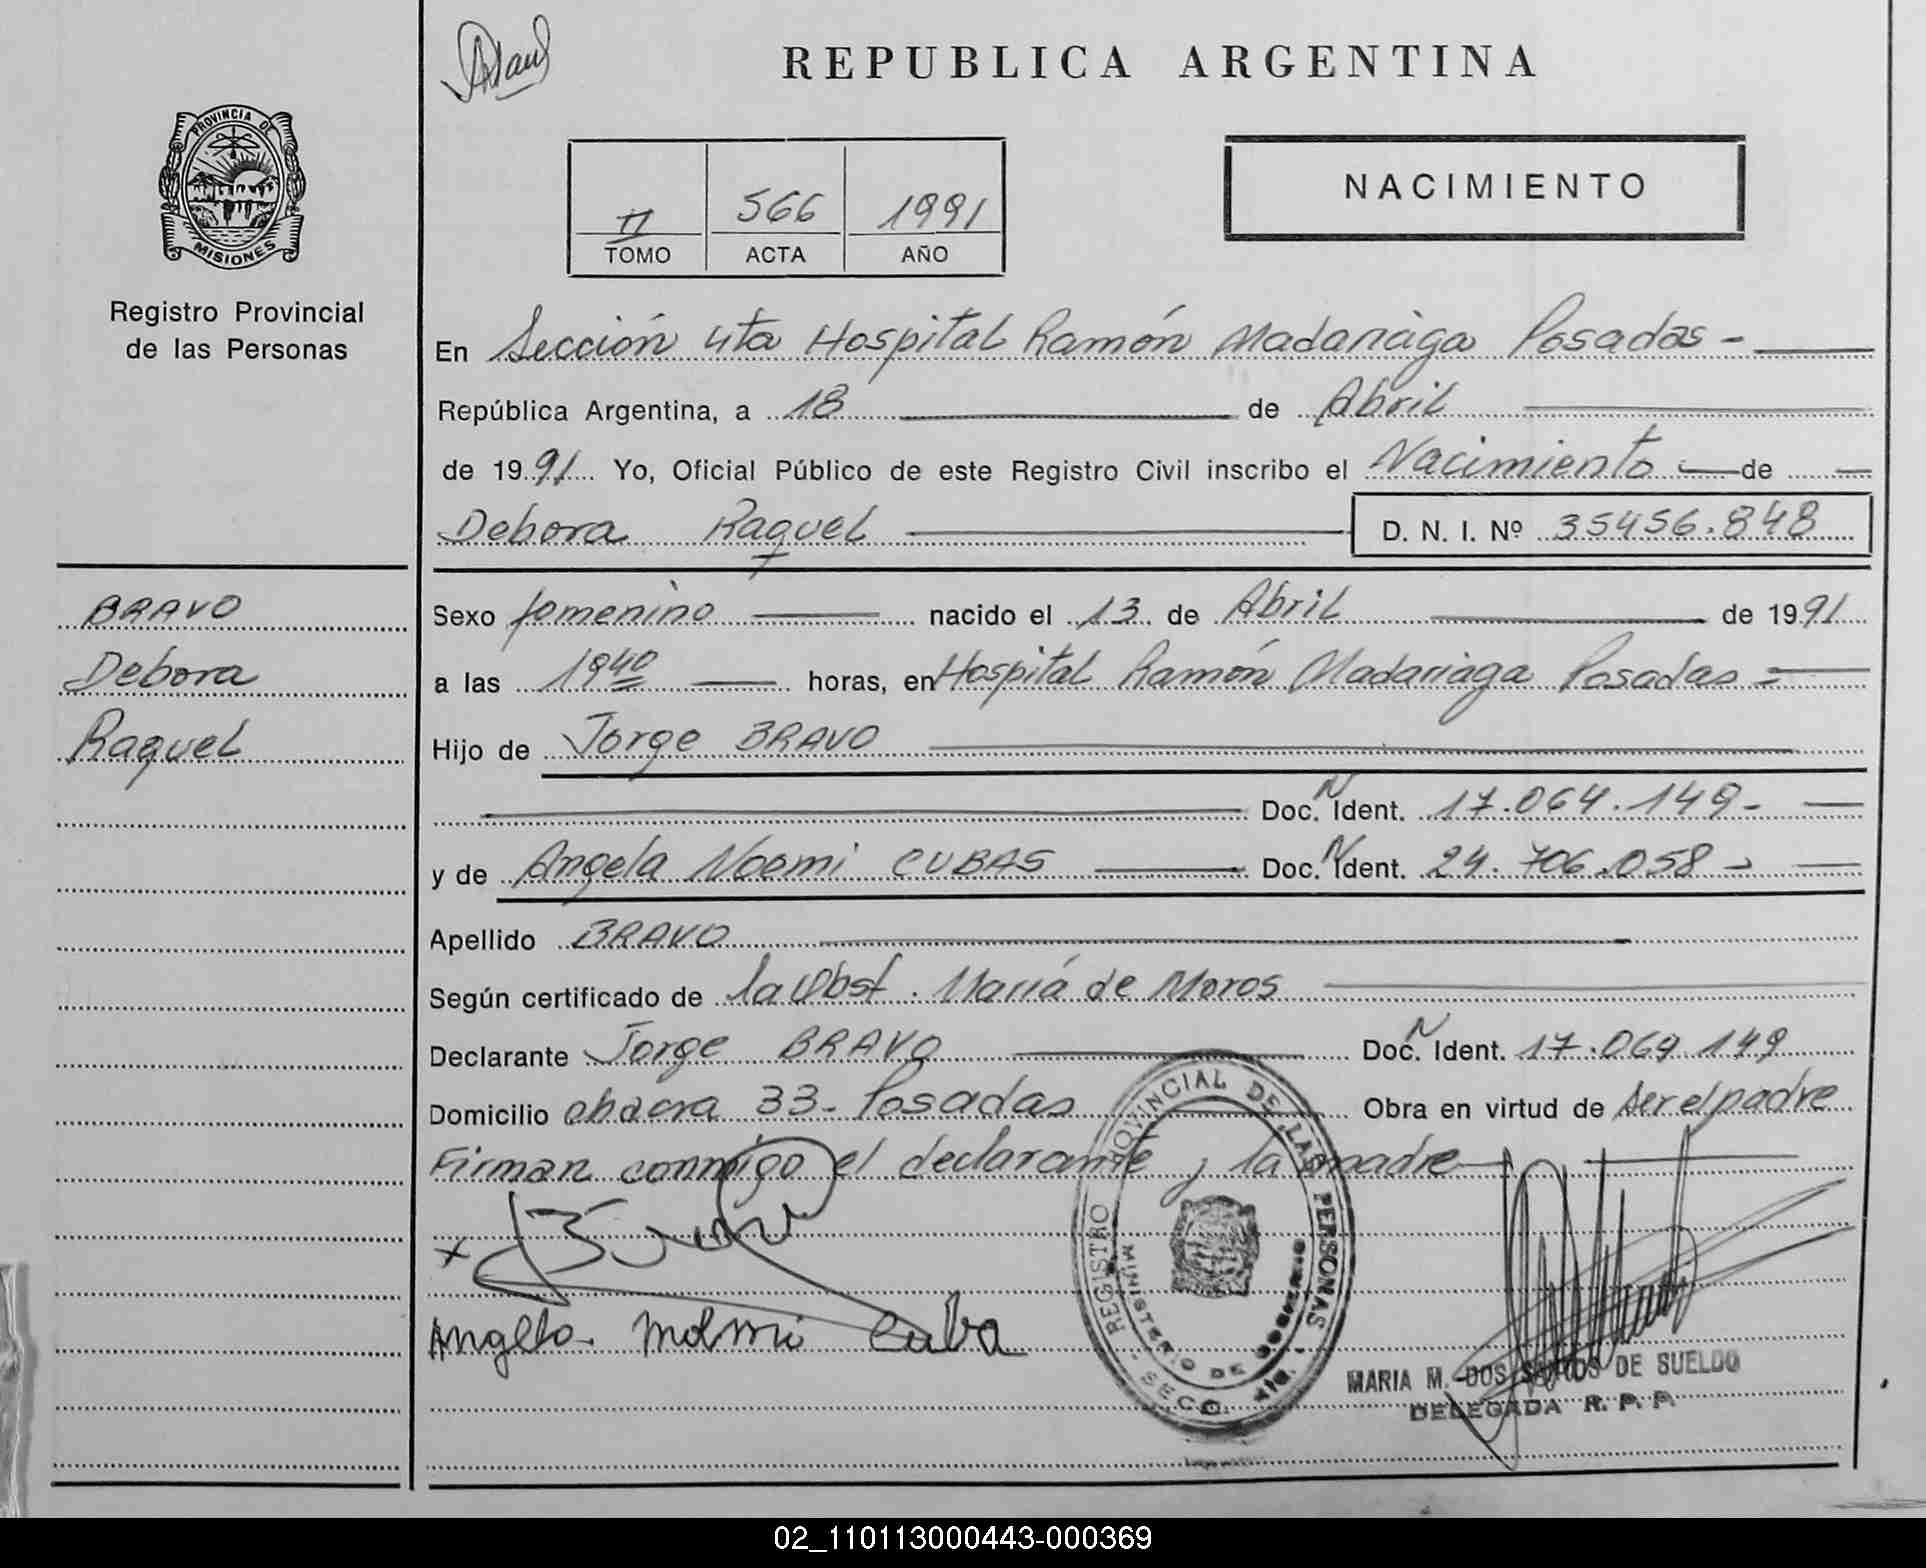 REPUBLICA ARGENTINA
PROVINCIA DE
MISIONES
Registro Provincial
de las Personas
II 566 1991
TOMO ACTA AÑO
NACIMIENTO
En Sección 4ta Hospital Ramón Madariaga Posadas -
República Argentina, a 18 de Abril
de 1991 Yo, Oficial Público de este Registro Civil inscribo el Nacimiento de
Debora Raquel D. N. I. Nº 35456.848
BRAVO
Debora
Raquel
Sexo femenino nacido el 13 de Abril de 1991
a las 1940 horas, en Hospital Ramón Madariaga Posadas =
Hijo de Jorge BRAVO
Doc. N Ident. 17.064.149-
y de Angela Noemi CUBAS Doc. N Ident. 24.706.058-
Apellido BRAVO
Según certificado de la Obst. María de Moros
Declarante Jorge BRAVO Doc. N Ident. 17.064.149
Domicilio chacra 33- Posadas Obra en virtud de ser el padre
Firman conmigo el declarante y la madre
Angela Cuba
REGISTRO PROVINCIAL DE LAS PERSONAS
MINISTERIO DE GOBIERNO
SECC. 4ta.
MARIA M. DOS SANTOS DE SUELDO
DELEGADA R. P. P.
02_110113000443-000369